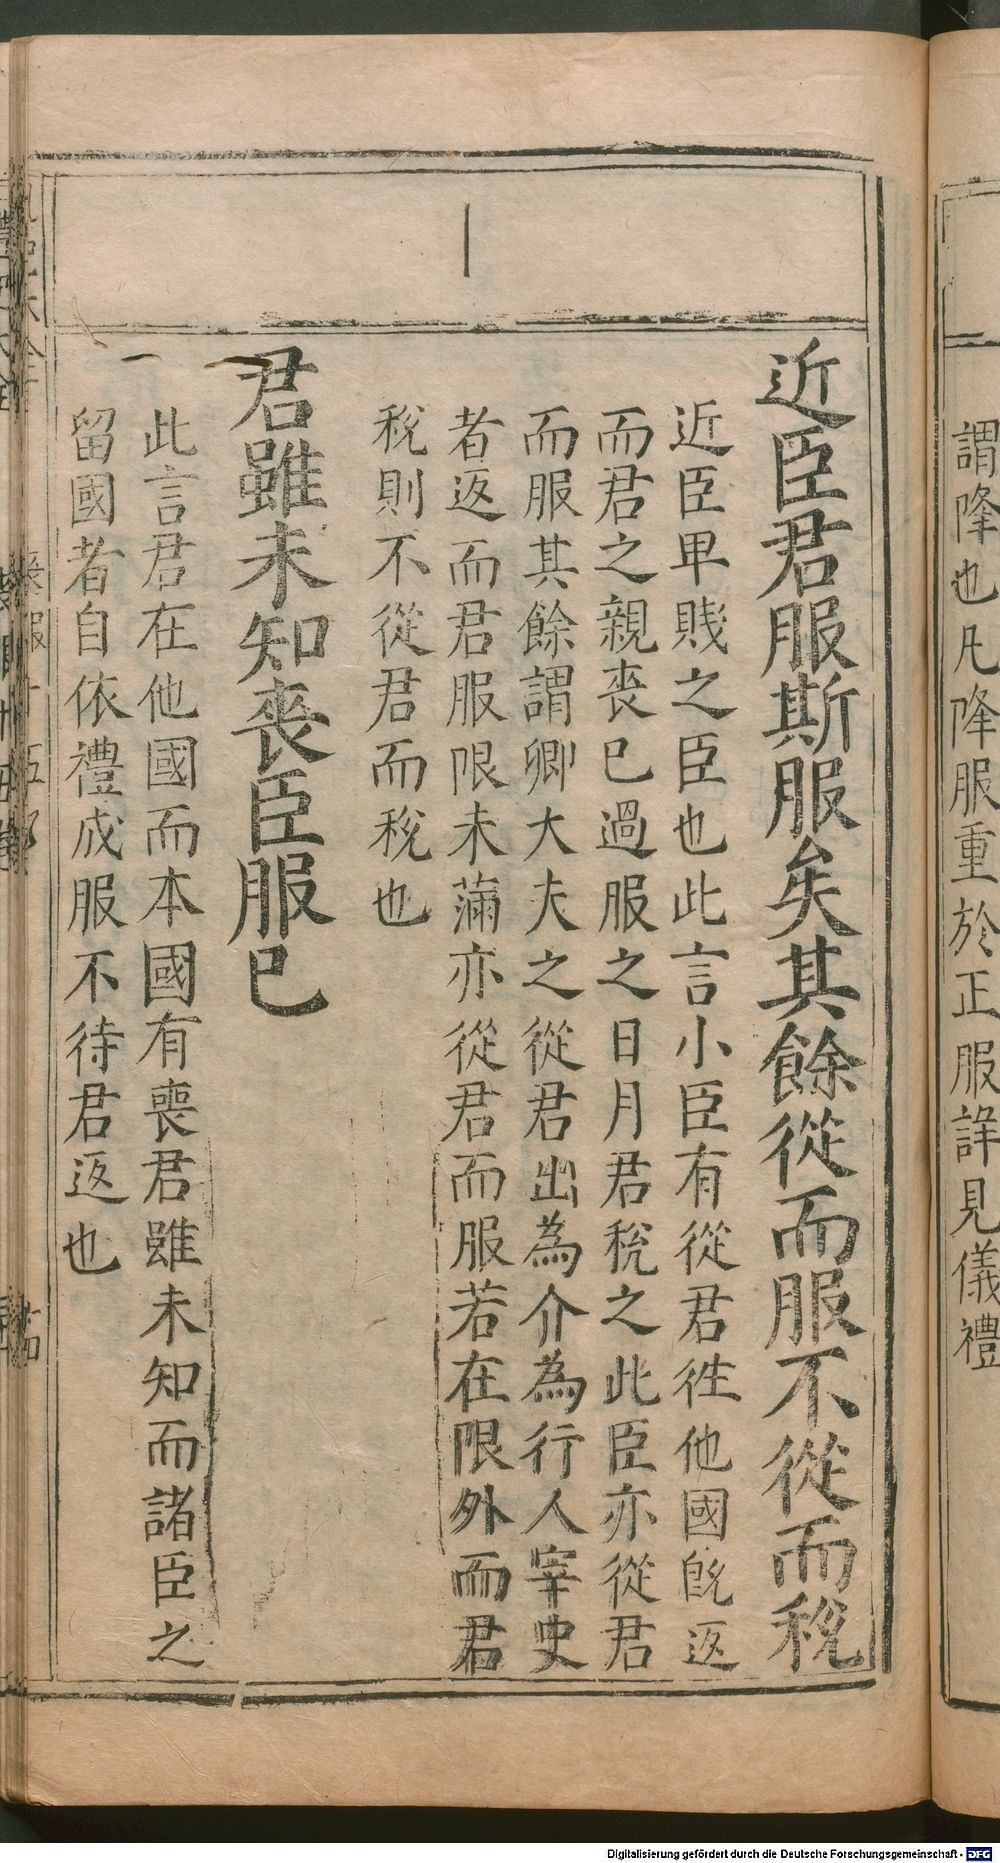 謂降也凡降服重於正服詳見儀禮
近臣君服斯服矣其餘從而服不從而稅
近臣卑賤之臣也此言小臣有從君徃他國旣返
而君之親丧已過服之日月君稅之此臣亦從君
而服其餘謂卿大夫之從君出為介為行人宰史
者返而君服限未滿亦從君而服若在限外而君
稅則不從君而稅也
君雖未知丧臣服已
此言君在他國而本國有喪君雖未知而諸臣之
留國者自依禮成服不待君返也
Digitalisierung gefördert durch die Deutsche Forschungsgemeinschaft - DFG